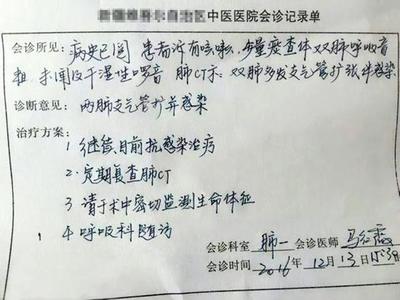 中医医院会诊记录单
会诊所见：病史已阅 患者诉有咳嗽，多量痰查体 双肺呼吸音
粗 未闻及干湿性啰音 肺CT示：双肺多发支气管扩张伴感染
诊断意见：两肺支气管扩并感染
治疗方案：
1 继续目前抗感染治疗
2.定期复查肺CT
3 请于术中密切监测生命体征
4 呼吸科随访
会诊科室 肺一 会诊医师 马红霞
会诊时间 2016年12月13日